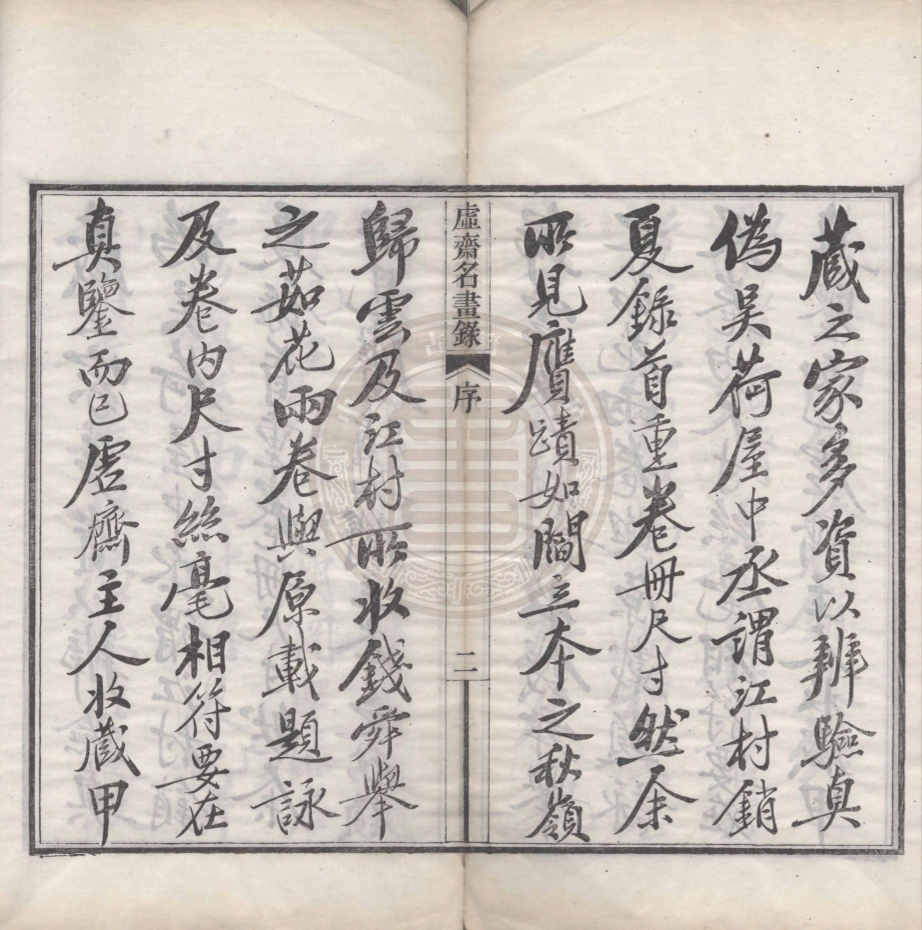 蔵之家多資以辨驗真
偽吳荷屋中丞謂江村銷
夏錄首重卷冊尺寸然余
所見贋蹟如閻立本之秋嶺
虛齋名畫錄 序 二
歸雲及江村所收錢舜舉
之茹花兩卷與原載題詠
及卷內尺寸絲毫相符要在
真鑒而已虛齋主人收蔵甲